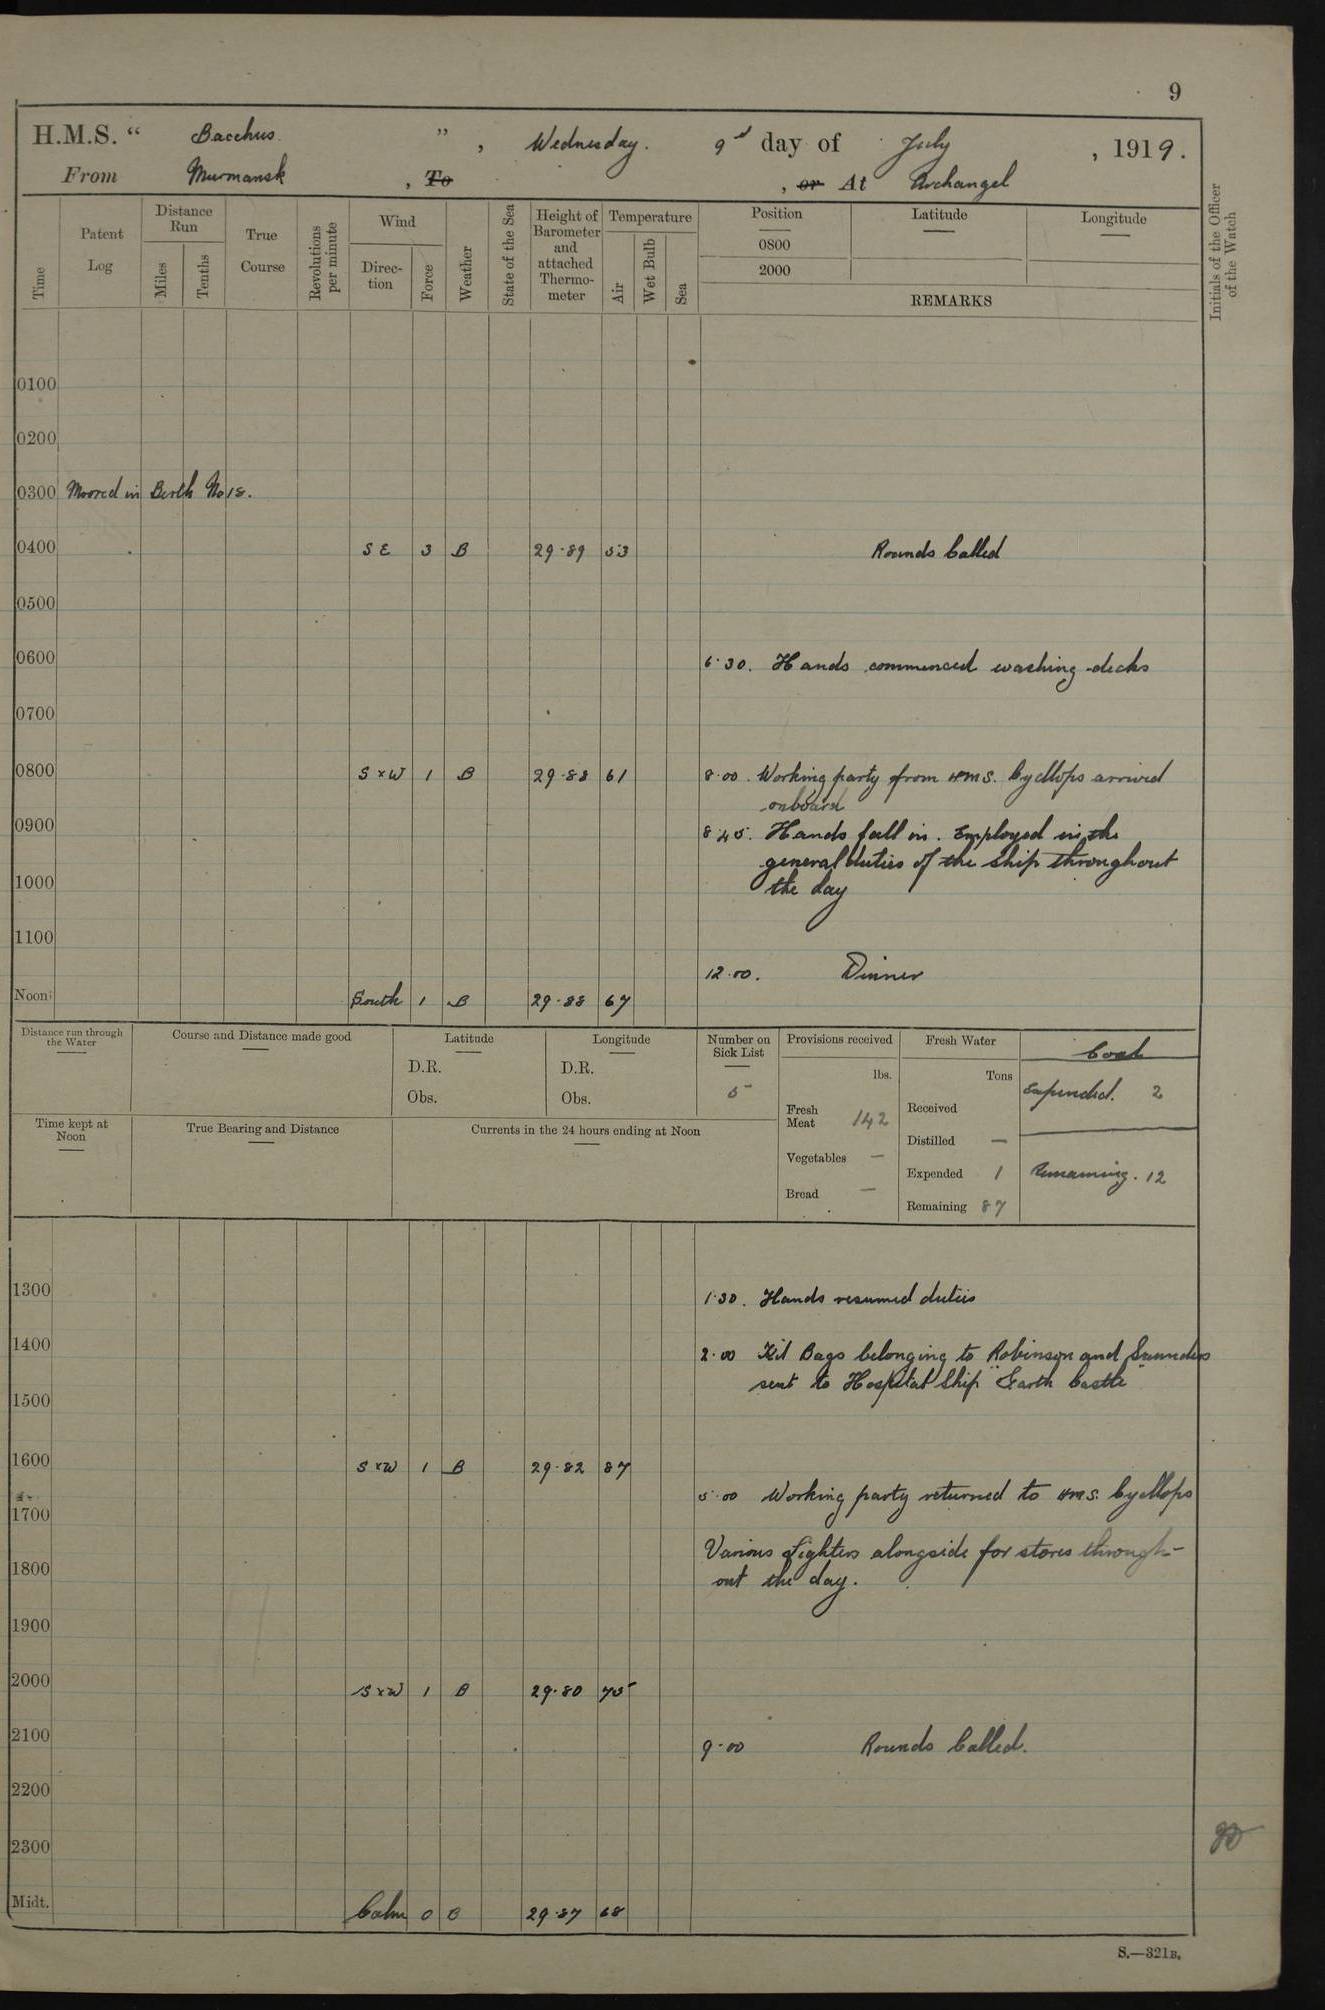 9
H.M.S. “ Bacchus ” , Wednesday. 9th day of July , 1919.
From Murmansk , To , or At Archangel
Time
Patent Log
Distance Run
Miles
Tenths
True Course
Revolutions per minute
Wind
Direc-tion
Force
Weather
State of the Sea
Height of Barometer and attached Thermo-meter
Temperature
Air
Wet Bulb
Sea
Position Latitude Longitude
0800
2000
REMARKS
Initials of the Officer of the Watch
0100
0200
0300 Moored in Berth No 18.
0400 S E 3 B 29.89 53 Rounds Called
0500
0600 6.30. Hands commenced washing decks
0700
0800 S x W 1 B 29.88 61 8.00. Working party from HMS. Cycllops arrived
onboard
0900 8.45. Hands fall in. Employed in the
general duties of the ship throughout
1000 the day
1100
12.00. Dinner
Noon South 1 B 29.88 67
Distance run through the Water
Course and Distance made good
Latitude
D.R.
Obs.
Longitude
D.R.
Obs.
Number on Sick List
5
Provisions received
lbs.
Fresh Meat 142
Vegetables —
Bread —
Fresh Water
Tons
Received
Distilled —
Expended 1
Remaining 87
Coal
Expended. 2
Remaining. 12
Time kept at Noon
True Bearing and Distance
Currents in the 24 hours ending at Noon
1300 1.30. Hands resumed duties
1400 2.00 Kit Bags belonging to Robinson and Saunders
sent to Hospital Ship "Garth Castle"
1500
1600 S x W 1 B 29.82 87
5.00 Working party returned to HMS. Cycllops
1700
Various Lighters alongside for stores through-
1800 out the day.
1900
2000 S x W 1 B 29.80 75
2100 9.00 Rounds Called.
2200
2300
Midt. Calm 0 B 29.87 68
S.—321B.